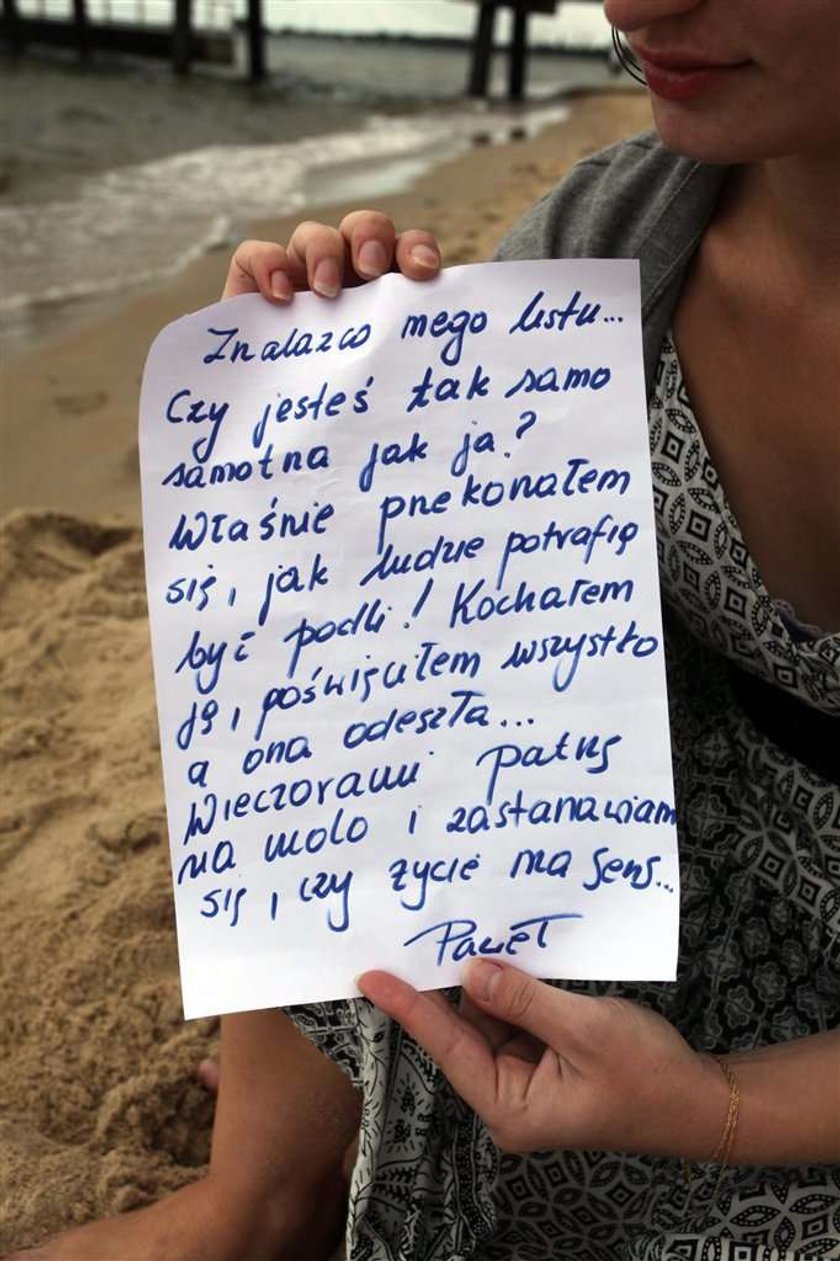 Znalazco mego listu...
Czy jesteś tak samo
samotna jak ja?
Właśnie przekonałem
się, jak ludzie potrafią
być podli! Kochałem
ją i poświęciłem wszystko
a ona odeszła...
Wieczorami patrzę
na molo i zastanawiam
się, czy życie ma sens...
Paweł